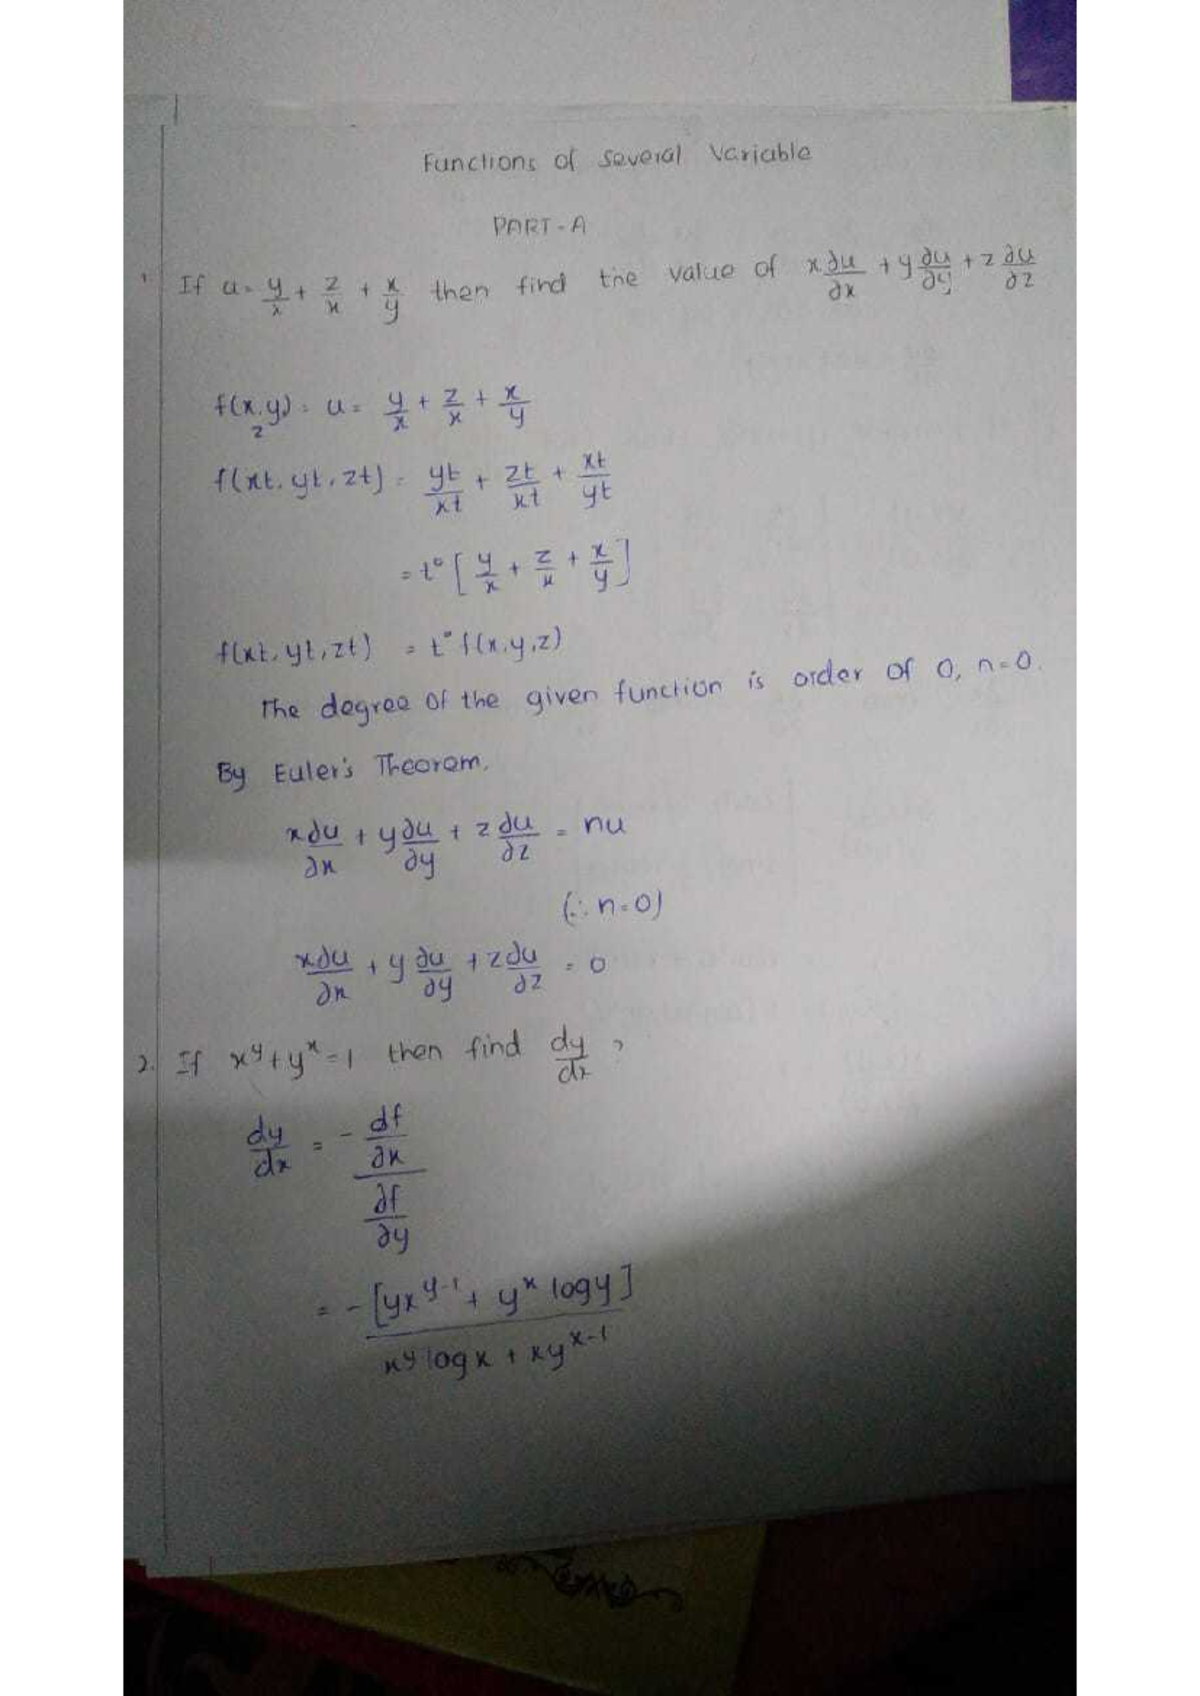 Functions of Several Variable
PART-A
1. If u = y/x + z/x + x/y then find the value of x ∂u/∂x + y ∂u/∂y + z ∂u/∂z
f(x,y,z) = u = y/x + z/x + x/y
f(xt, yt, zt) = yt/xt + zt/xt + xt/yt
= t° [y/x + z/x + x/y]
f(xt, yt, zt) = t° f(x,y,z)
The degree of the given function is order of 0, n=0.
By Euler's Theorem,
x∂u/∂x + y∂u/∂y + z∂u/∂z = nu
(∵ n=0)
x∂u/∂x + y∂u/∂y + z∂u/∂z = 0
2. If x^y + y^x = 1 then find dy/dx ?
dy/dx = - (∂f/∂x)/(∂f/∂y)
= - [yx^(y-1) + y^x log y] / (x^y log x + xy^(x-1))